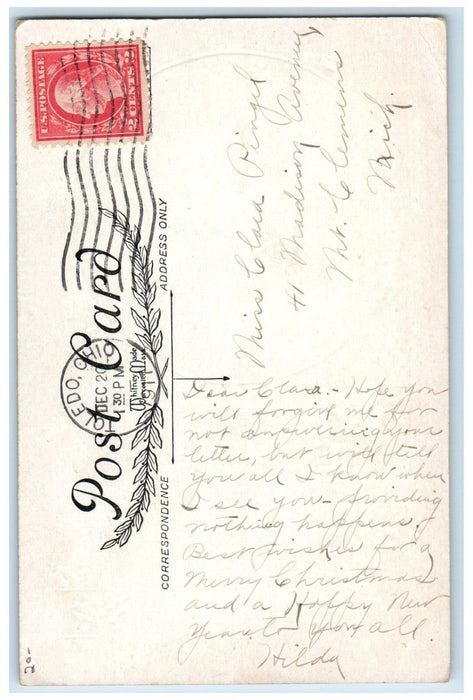 U.S. POSTAGE
2 CENTS 2
EDO, OHIO
DEC 20
1 30 PM
Post Card
Whitney Made
Worcester, Mass
CORRESPONDENCE
ADDRESS ONLY
Miss Clara Pingel
41 Madison Avenue,
Mt. Clemens
Mich.
Dear Clara. - Hope you
will forgive me for
not answering your
letter, but will tell
you all I know when
I see you - providing
nothing happens.
Best wishes for a
Merry Christmas
and a Happy New
Year to you all.
Hilda
20-